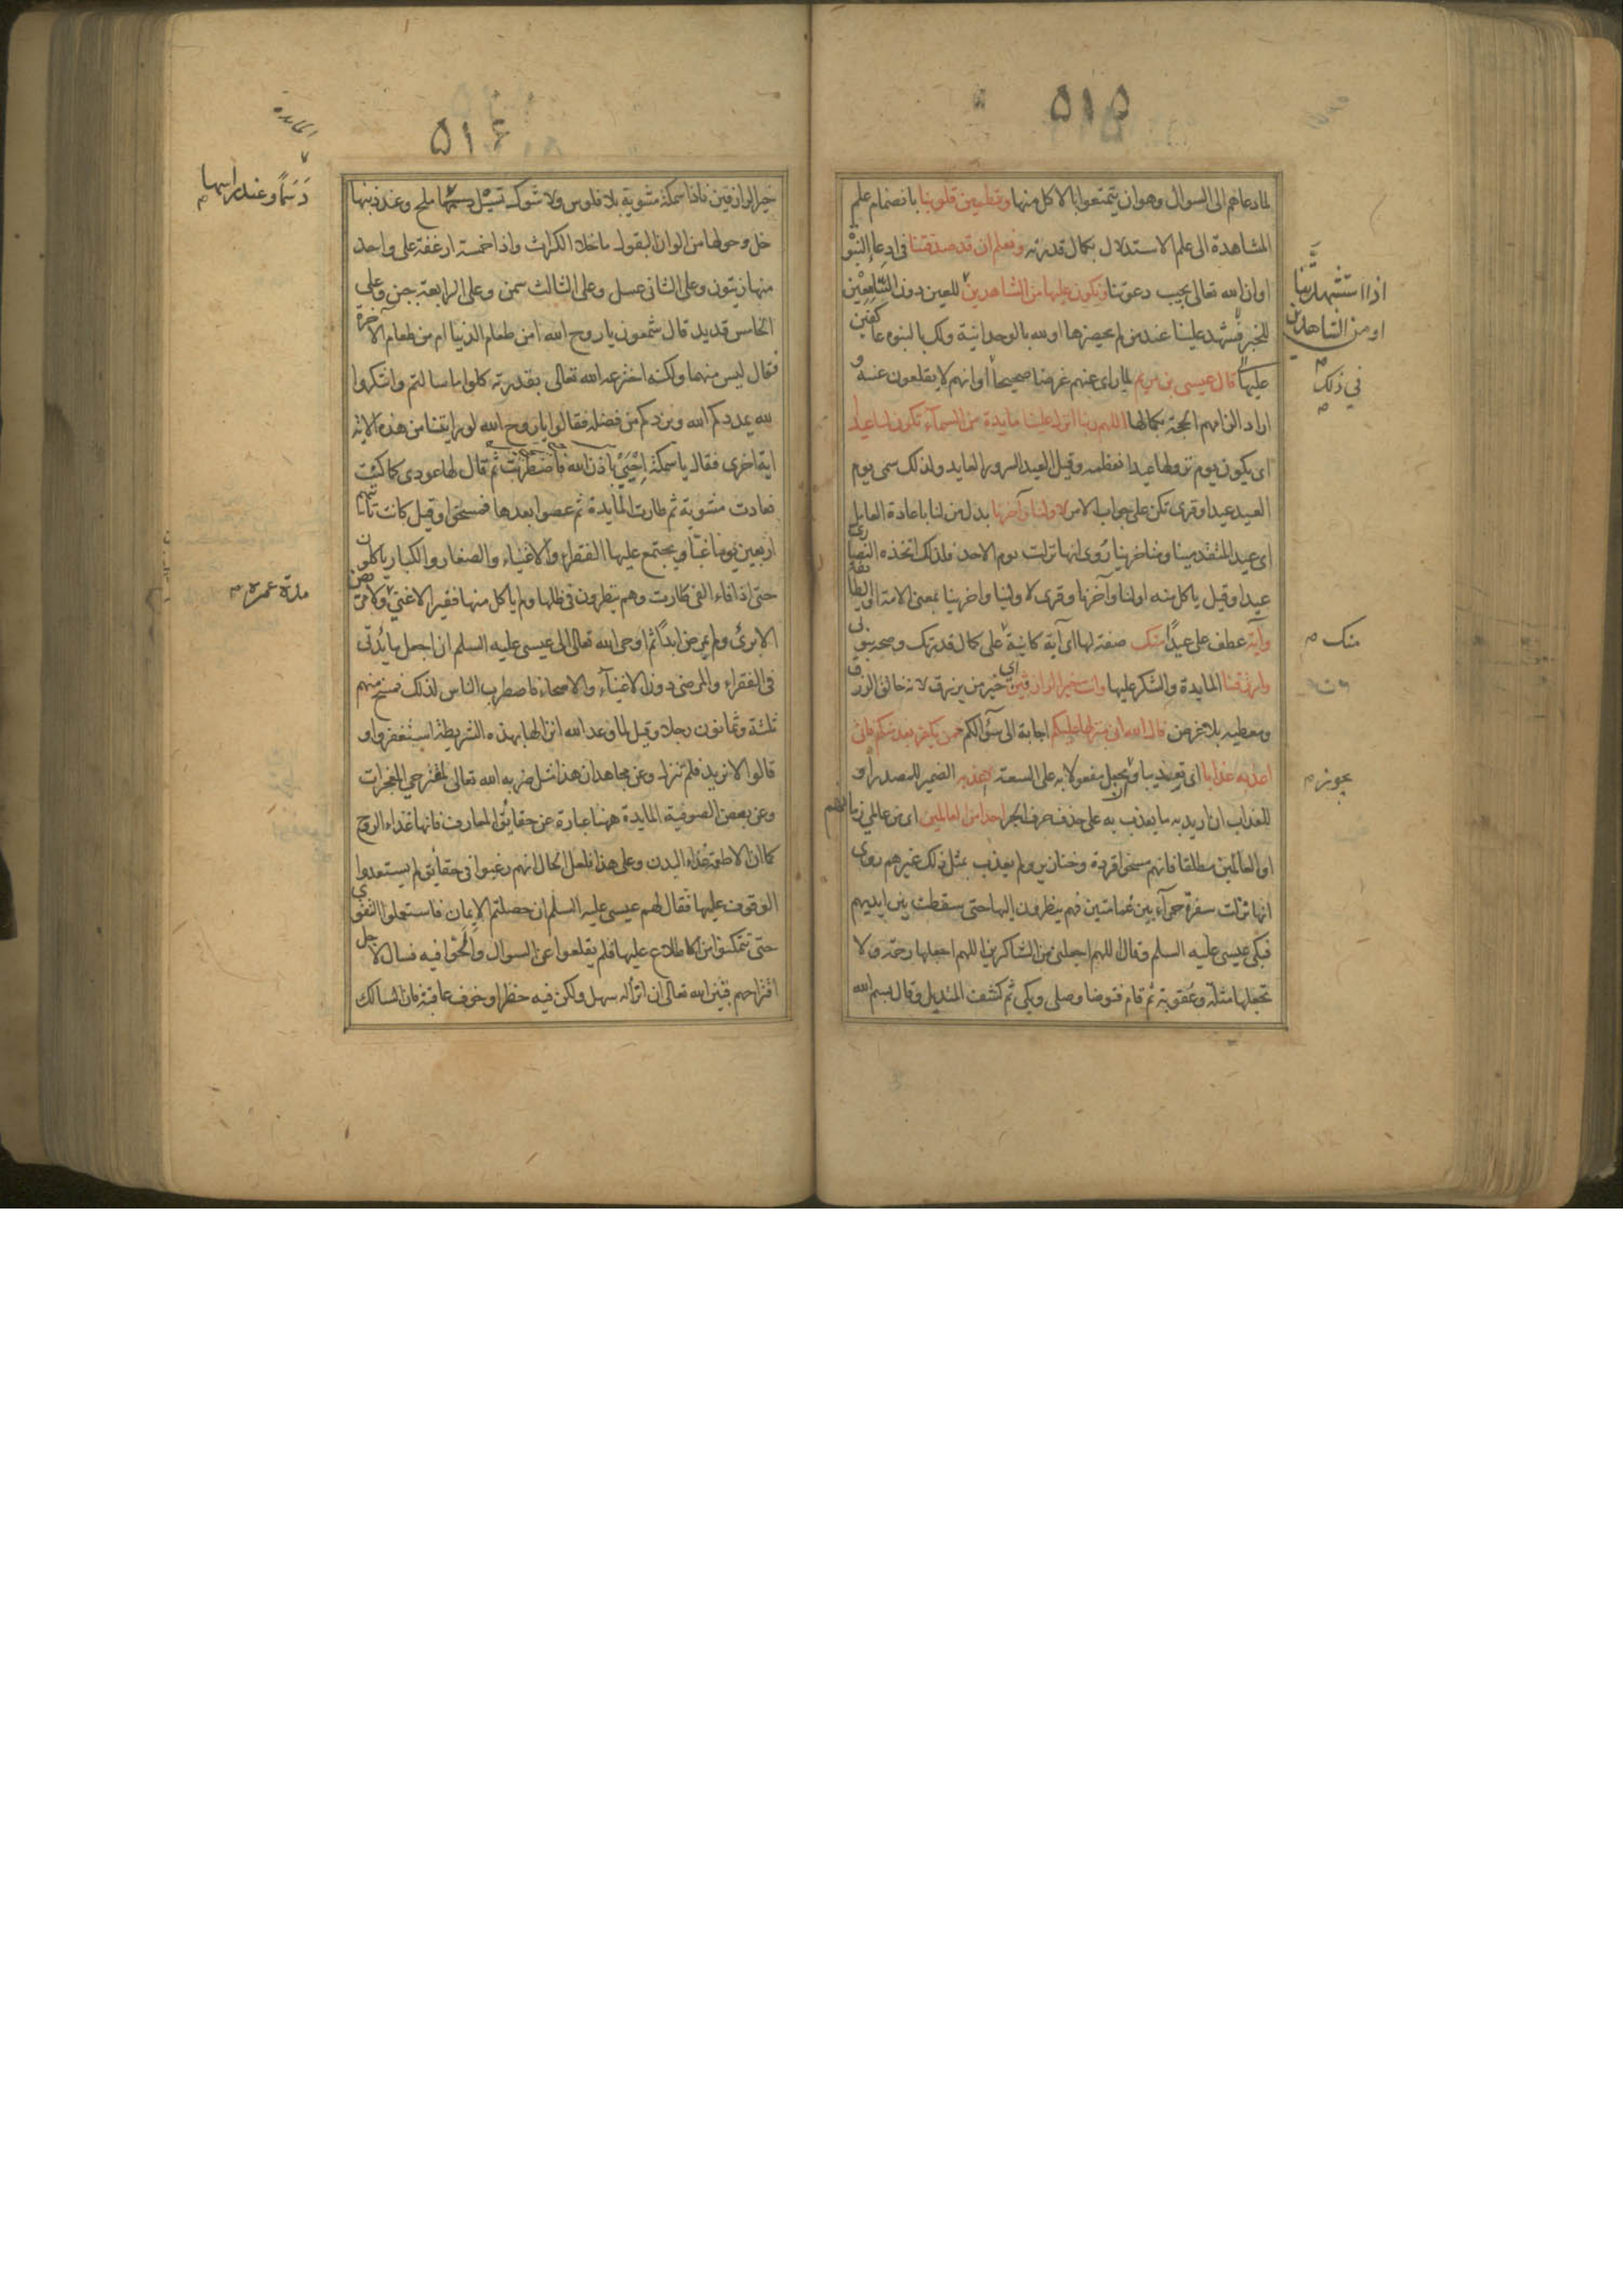 ٥١٥
لما دعاهم الى السوال وهو ان يتمتعوا بالاكل منها وتطمين قلوبنا بانضمام علم
المشاهدة الى علم الاستدلال بكمال قدرته ونعلم ان قد صدقتنا فى ادعا النبو
اوان الله تعالى يجيب دعوتنا ونكون عليها من الشاهدين للعين دون السامعين
للخبر فنشهد علينا عند من لم يحضرها او لله بالوحدانية ولك بالنبوه عاكفين
عليها قال عيسى بن مريم لما راى عنهم غرضا صحيحا اوانهم لا يقلعون عنه و
اراد الزامهم الحجة بكمالها اللهم ربنا انزل علينا مايدة من السمآء تكون لنا عيدا
اى يكون يوم نزولها عيدا نعظمه وقيل العيد السرور العايد ولذلك سمى يوم
العيد عيدا وقرى تكن على جواب الامر لاولنا وآخرنا بدل من لنا باعادة العامل
اى عيد المتقدمينا ومتاخرينا روى انها نزلت يوم الاحد فلذلك اتخذه النصارى
عيدا وقيل ياكل منه اولنا وآخرنا وقرى لاولينا واخرينا بمعنى الامة او الطايفة
وآية عطف على عيدا منك صفة لها اى آية كاينة على كمال قدرتك وصحة نبوتى
وارزقنا المايدة والشكر عليها وانت خير الرازقين اى خير من يرزق لانه خالق الرزق
ومعطيه بلا غرض قال الله انى منزلها عليكم اجابة الى سؤالكم فمن يكفر بعد منكم فانى
اعذبه عذابا اى تعذيبا ويجعل مفعولا به على السعة لا اعذبه الضمير للمصدر او
للعذاب ان اريد به ما يعذب به على حذف حرف الجر احدا من العالمين اى من عالمى زمانهم
او العالمين مطلقا فانهم مسخوا قردة وخنازير ولم يعذب بمثل ذلك غيرهم روى
انها نزلت سفرة حمرآء بين غمامتين وهم ينظرون اليها حتى سقطت بين ايديهم
فبكى عيسى عليه السلم وقال اللهم اجعلنى من الشاكرين اللهم اجعلها رحمة ولا
تجعلها مثلة وعقوبة ثم قام فتوضا وصلى وبكى ثم كشف المنديل وقال بسم الله
اذا استشهدتنا
او من الشاهدين
فى ذلك
منك
يجوز
٥١٦
المايدة
خير الرازقين فاذا سمكة مشوية بلا فلوس ولا شوك تسيل دسما ملح وعند ذنبها
خل وحولها من الوان البقول ما خلا الكراث واذا خمسة ارغفة على واحد
منها زيتون وعلى الثانى عسل وعلى الثالث سمن وعلى الرابعة جبن وعلى
الخامس قديد قال شمعون يا روح الله امن طعام الدنيا ام من طعام الاخرة
فقال ليس منهما ولكنه اخترعه الله تعالى بقدرته كلوا ما سالتم واشكروا
لله يمددكم الله ويزدكم من فضله فقالوا يا روح الله لو اريتنا من هذه الاية
اية اخرى فقال يا سمكة احيى باذن الله فاضطربت ثم قال لها عودى كما كنت
فعادت مشوية ثم طارت المايدة ثم عصوا بعدها فمسخوا وقيل كانت تاتيهم
اربعين يوما غبا ويجتمع عليها الفقراء والاغنياء والصغار والكبار ياكلون
حتى اذا فاء الفى طارت وهم ينظرون فى ظلها ولم ياكل منها فقير الا غنى ولا مريض
الا برئ ولم يمرض ابدا ثم اوحى الله تعالى الى عيسى عليه السلم ان اجعل مايدتى
فى الفقراء والمرضى دون الاغنيآء والاصحاء فاضطرب الناس لذلك فمسخ منهم
ثلثة وثمانون رجلا وقيل لما وعد الله انزالها بهذه الشريطة استغفروا و
قالوا لا نريد فلم تنزل وعن مجاهد ان هذا مثل ضربه الله تعالى لمقترحى المعجزات
وعن بعض الصوفية المايدة ههنا عبارة عن حقايق المعارف فانها غذاء الروح
كما ان الاطعمة غذاء البدن وعلى هذا فلعل الحال انهم رغبوا فى حقايق لم يستعدوا
الوقوف عليها فقال لهم عيسى عليه السلم ان حصلتم الايمان فاستعملوا التقوى
حتى تتمكنوا من الاطلاع عليها فلم يقلعوا عن السوال والحوا فيه فسال لاجل
اقتراحهم فبين الله تعالى ان انزاله سهل ولكن فيه خطرا وخوف عاقبة فان السالك
دسما وعند راسها
مدة عمره